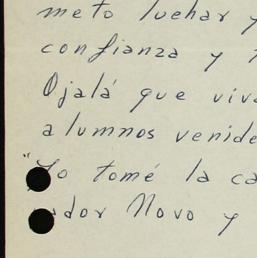 meto luchar y
confianza y
Ojalá que viv
alumnos venide
"Yo tomé la ca
ador Novo y